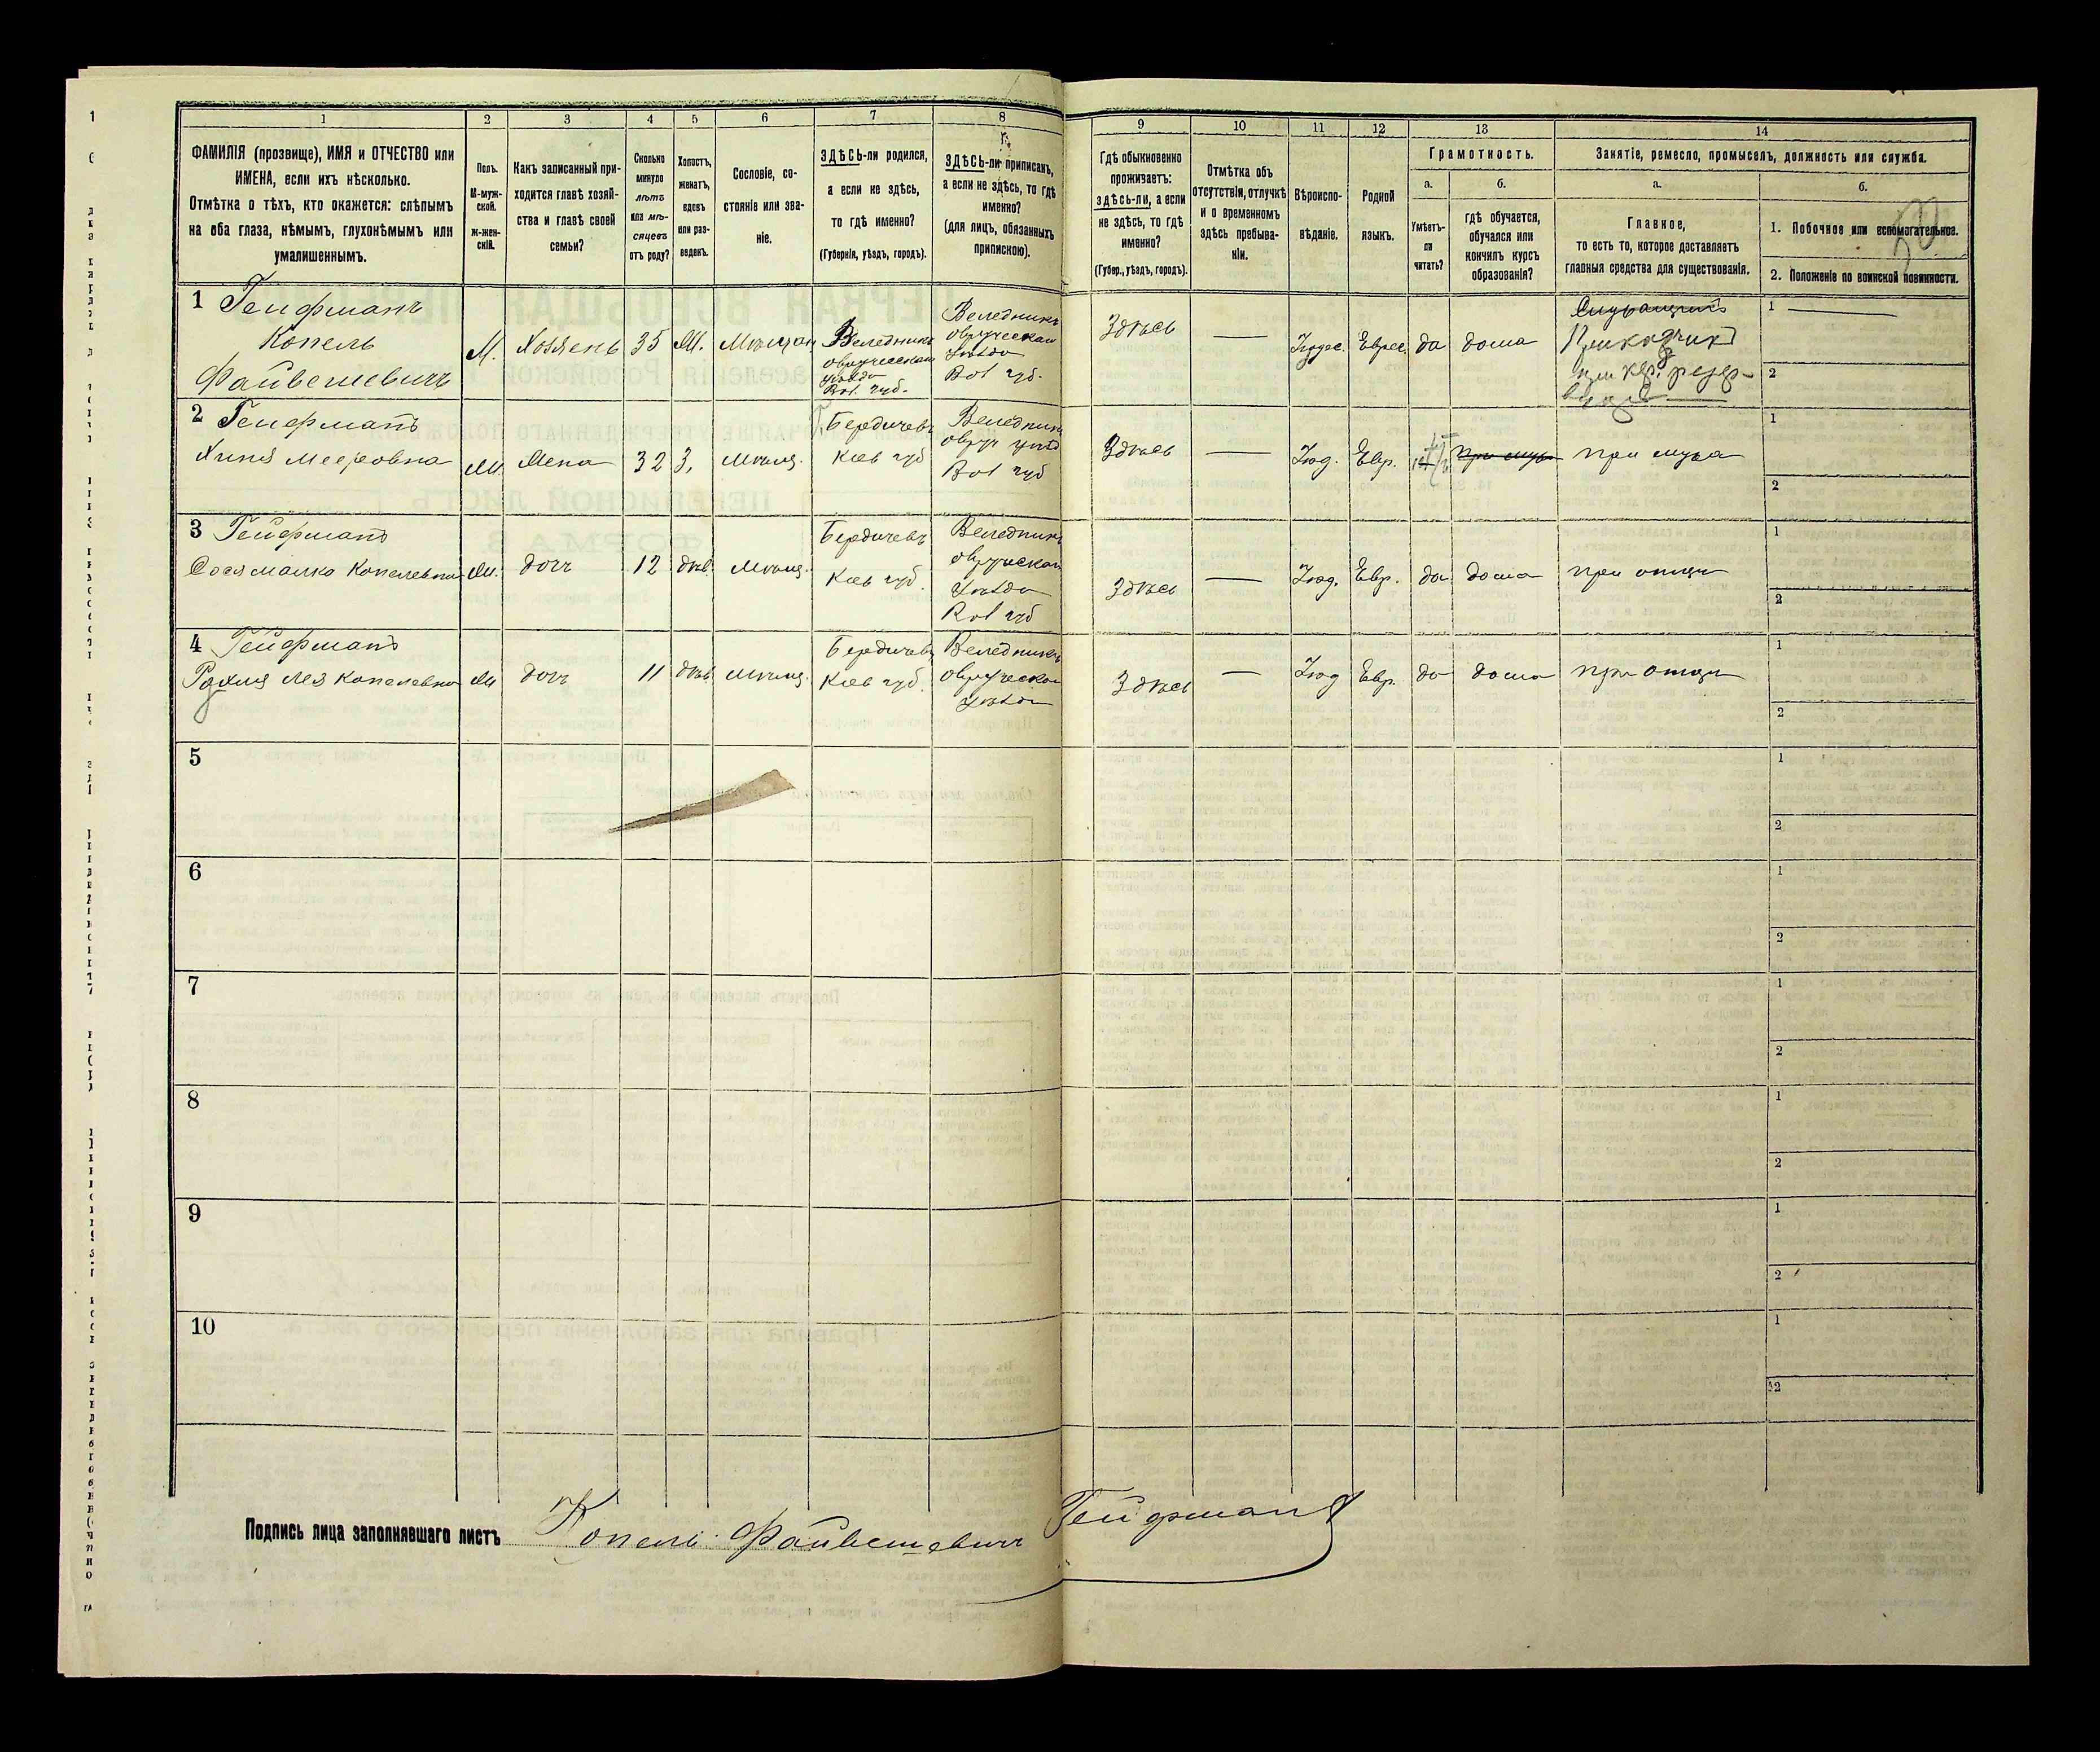 1 2 3 4 5 6 7 8 9 10 11 12 13 14
ФАМИЛІЯ (прозвище), ИМЯ и ОТЧЕСТВО или
ИМЕНА, если ихъ нѣсколько.
Отмѣтка о тѣхъ, кто окажется: слѣпымъ
на оба глаза, нѣмымъ, глухонѣмымъ или
умалишеннымъ.
Полъ.
М-муж-
ской.
ж-жен-
скій.
Какъ записанный при-
ходится главѣ хозяй-
ства и главѣ своей
семьи?
Сколько
минуло
лѣтъ
или мѣ-
сяцевъ
отъ роду?
Холостъ,
женатъ,
вдовъ
или раз-
веденъ.
Сословіе, со-
стояніе или зва-
ніе.
ЗДѢСЬ-ли родился,
а если не здѣсь,
то гдѣ именно?
(Губернія, уѣздъ, городъ).
ЗДѢСЬ-ли приписанъ,
а если не здѣсь, то гдѣ
именно?
(для лицъ, обязанныхъ
припискою).
Гдѣ обыкновенно
проживаетъ:
здѣсь-ли, а если
не здѣсь, то гдѣ
именно?
(Губер., уѣздъ, городъ).
Отмѣтка объ
отсутствіи, отлучкѣ
и о временномъ
здѣсь пребыва-
ніи.
Вѣроиспо-
вѣданіе.
Родной
языкъ.
Грамотность.
а.
Умѣетъ-
ли
читать?
б.
гдѣ обучается,
обучался или
кончилъ курсъ
образованія?
Занятіе, ремесло, промыселъ, должность или служба.
а.
Главное,
то есть то, которое доставляетъ
главныя средства для существованія.
б.
1. Побочное или вспомогательное.
2. Положеніе по воинской повинности.
1 Гейфманъ
Копель
Файвешевичъ
М. Хозяенъ 35 Ж. Мѣщан
Веледник
овруческаго
уѣзда
Вол. губ.
Веледник
овруческаго
уѣзда
Вол губ.
Здѣсь — Іудес. Еврес. да дома
Приказчик
1 —
2
2 Гейфманъ
Хиня Мееровна
Ж. Жена 32 З. мѣщ.
Бердичевъ
Кіев губ
Веледник
овруч уѣзд
Вол губ
Здѣсь — Іюд. Евр. при мужа
1
2
3 Гейфманъ
Сося малка Копелевна
Ж. дочь 12 дѣв. мѣщ.
Бердичевъ
Кіев губ.
Веледник
овруческаго
уѣзда
Вол губ
Здѣсь — Іюд. Евр. да дома при отци
1
2
4 Гейфманъ
Рохля Лея Копелевна
Ж дочь 11 дѣв мѣщ.
Бердичевъ
Кіев губ.
Веледник
овруческаго
уѣзда
Здѣсь — Іюд Евр. да дома при отци
1
2
5 1
2
6 1
2
7 1
2
8 1
2
9 1
2
10 1
2
Подпись лица заполнявшаго листъ Копель Файвешевичъ Гейфманъ